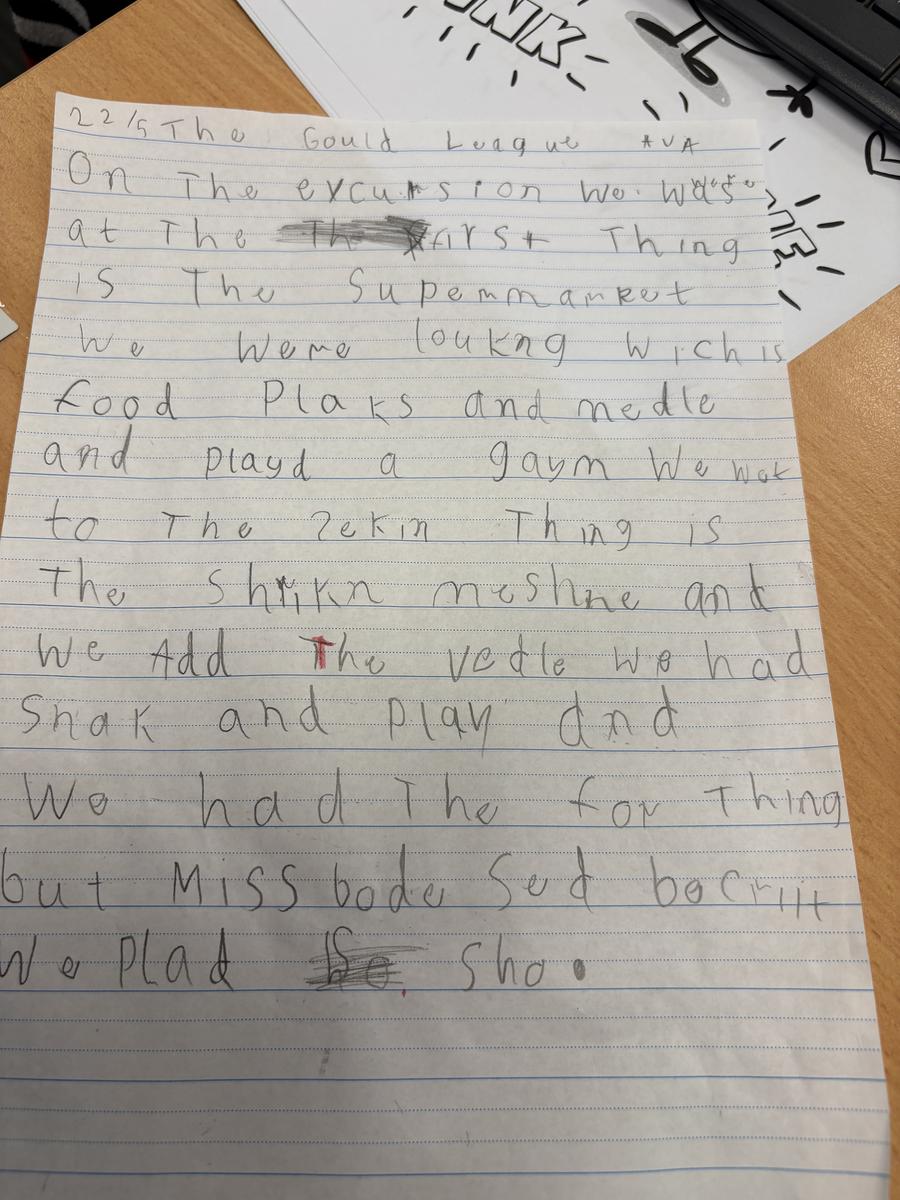 INK
22/5 The Gould League AVA
On The excursion we was
at The first Thing
is The Supermmarket
We Were loukng wich is
food Plaks and nedle
and playd a gaym We wat
to The 2ekin Thing is
The Shrikn meshne and
We Add The vedle we had
Snak and play and
We had The for Thing
but Miss bode Sed
We Plad Sho.